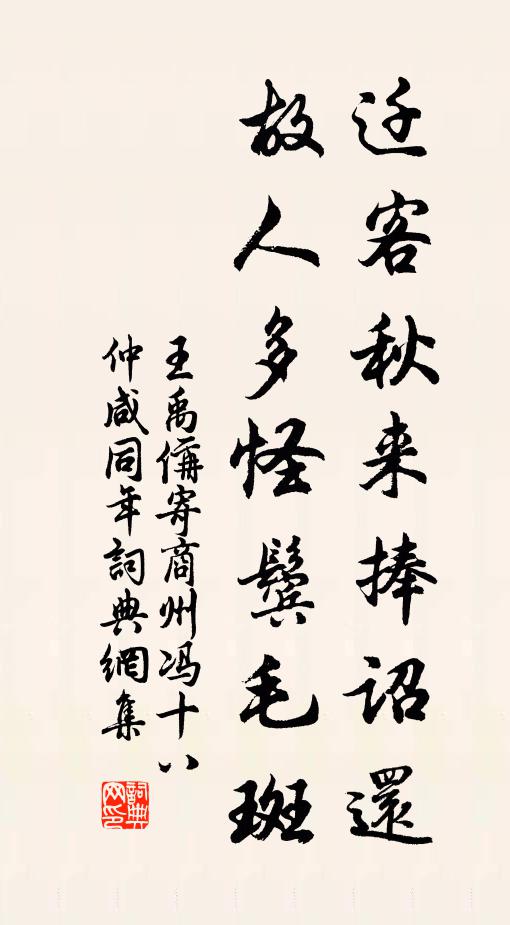 迁客秋来捧诏還
故人多怪鬓毛斑
王禹偁寄商州冯十八
仲咸同年詞典網集
詞典网印